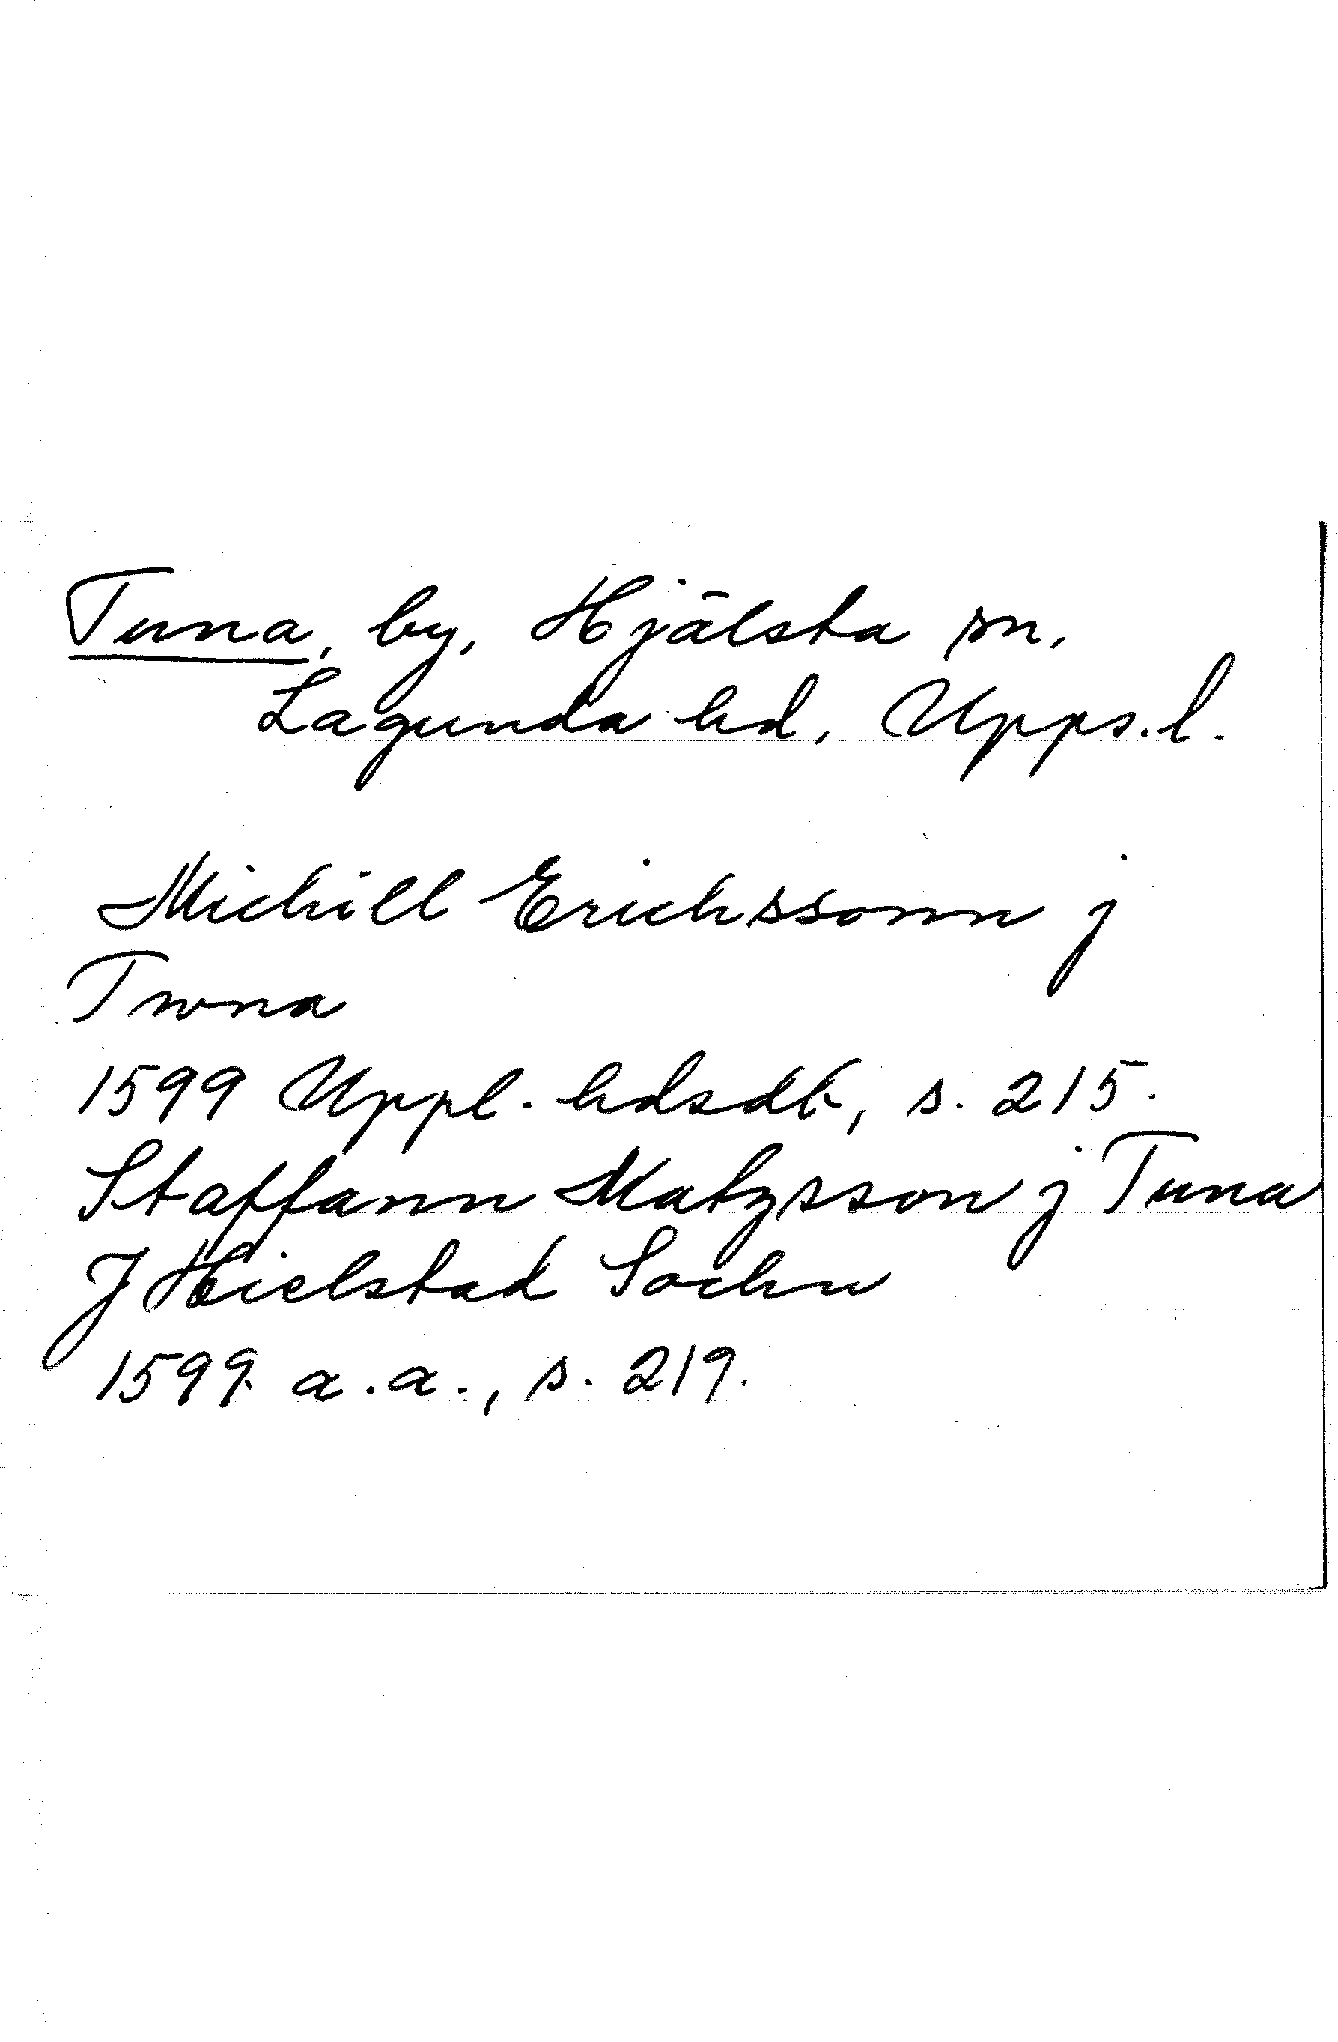 Tuna, by, Hjälsta sn,
Lagunda hd, Upps.l.
Michill Erichssonn j
Twna
1599 Uppl. hdsdb, s. 215.
Staffann Matzsson j Tuna
J Hielstad Sochn
1599 a.a., s. 219.